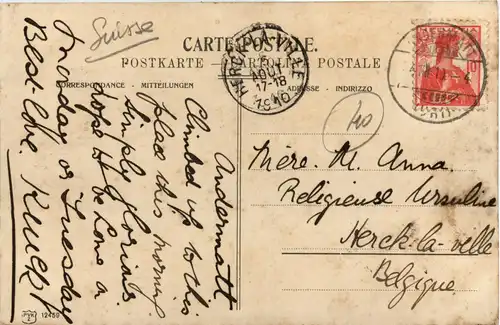 Suisse
CARTE POSTALE.
POSTKARTE — CARTOLINA POSTALE
CORRESPONDANCE - MITTEILUNGEN
ADRESSE - INDIRIZZO
HERCK-LA-VILLE
AOUT
17-18
1910
HELVETIA
Andermatt
Climbed up to this
place this morning
Simply glorious
Hope to be home
Monday or Tuesday
Best love.
Mère. M. Anna.
Religieuse Ursuline
Herck-la-ville
Belgique
12459